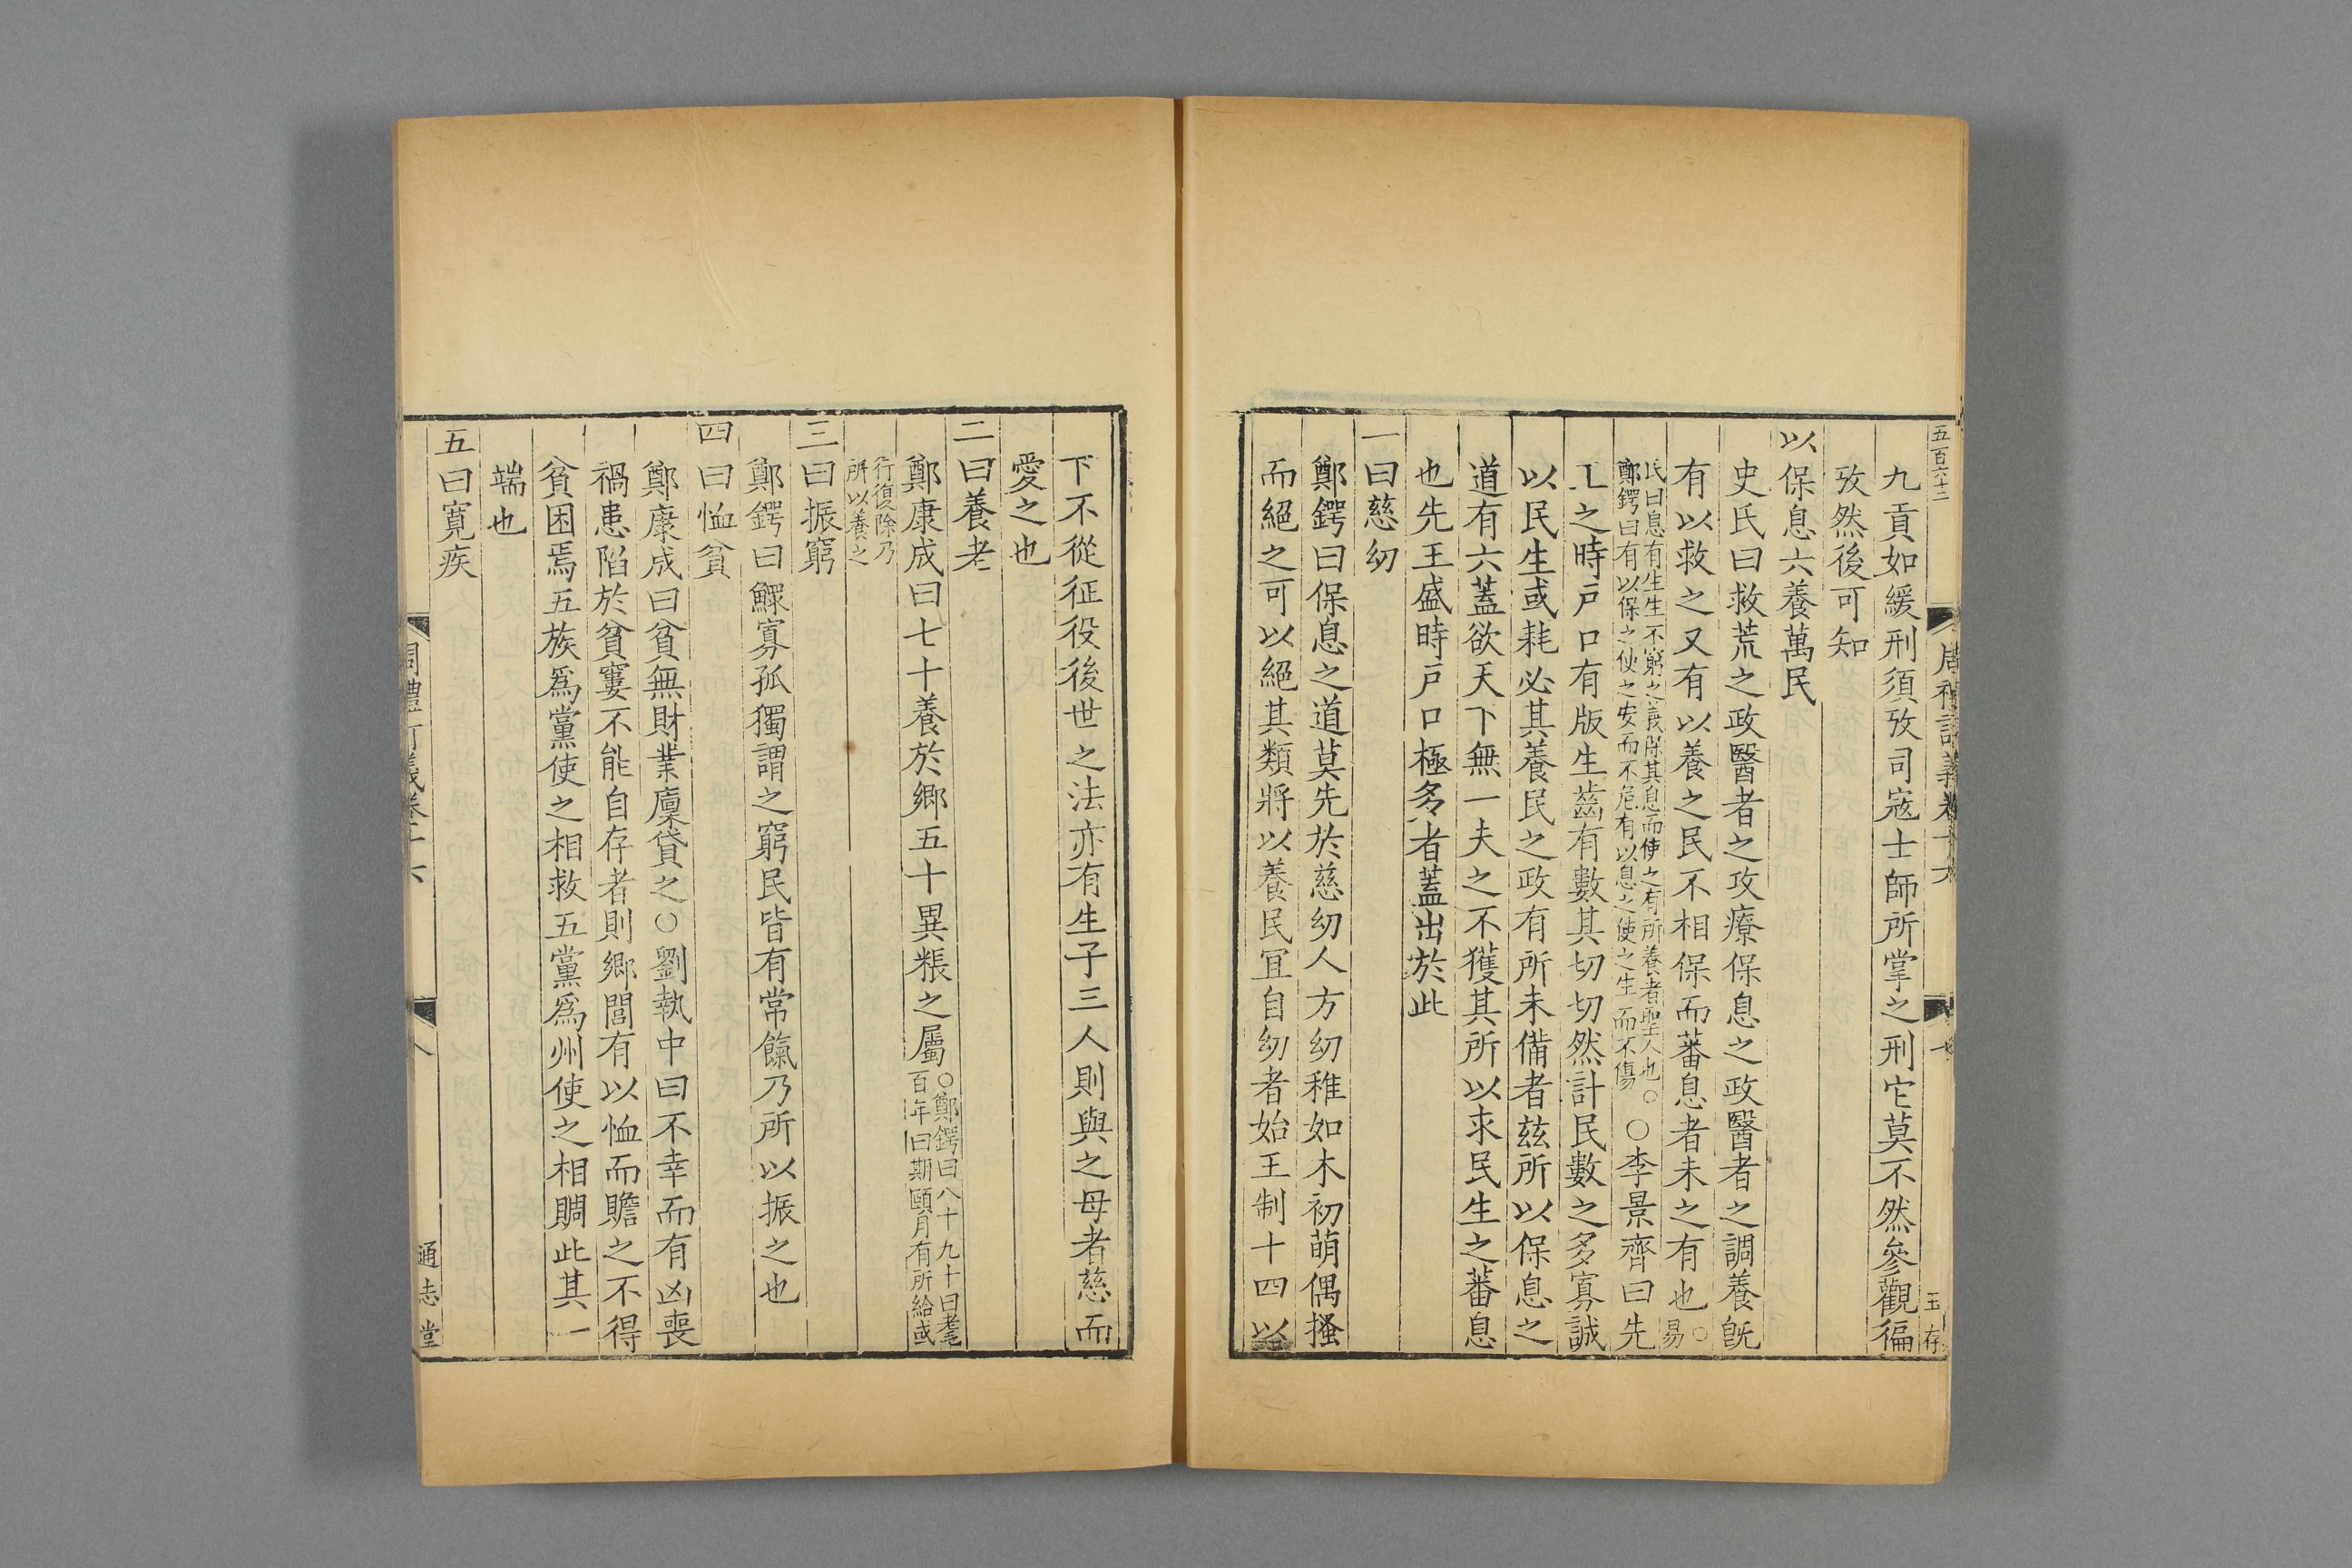 五百六十二
周禮訂義卷十六
七
玉存
九貢如緩刑須攷司寇士師所掌之刑它莫不然參觀徧
攷然後可知
以保息六養萬民
史氏曰救荒之政醫者之攻療保息之政醫者之調養旣
有以救之又有以養之民不相保而蕃息者未之有也○易
氏曰息有生生不窮之義保其息而使之有所養者聖人也○
鄭鍔曰有以保之使之安而不危有以息之使之生而不傷
○李景齊曰先
王之時戶口有版生齒有數其切切然計民數之多寡誠
以民生或耗必其養民之政有所未備者兹所以保息之
道有六蓋欲天下無一夫之不獲其所以求民生之蕃息
也先王盛時戶口極多者蓋出於此
一曰慈幼
鄭鍔曰保息之道莫先於慈幼人方幼稚如木初萌偶搔
而絕之可以絕其類將以養民宜自幼者始王制十四以
下不從征役後世之法亦有生子三人則與之母者慈而
愛之也
二曰養老
鄭康成曰七十養於鄉五十異粻之屬
○鄭鍔曰八十九十曰耄
百年曰期頤月有所給或
行復除乃
所以養之
三曰振窮
鄭鍔曰鰥寡孤獨謂之窮民皆有常餼乃所以振之也
四曰恤貧
鄭康成曰貧無財業廩貸之○劉執中曰不幸而有凶喪
禍患陷於貧窶不能自存者則鄉閭有以恤而贍之不得
貧困焉五族爲黨使之相救五黨爲州使之相賙此其一
端也
五曰寬疾
周禮訂義卷十六
八
通志堂